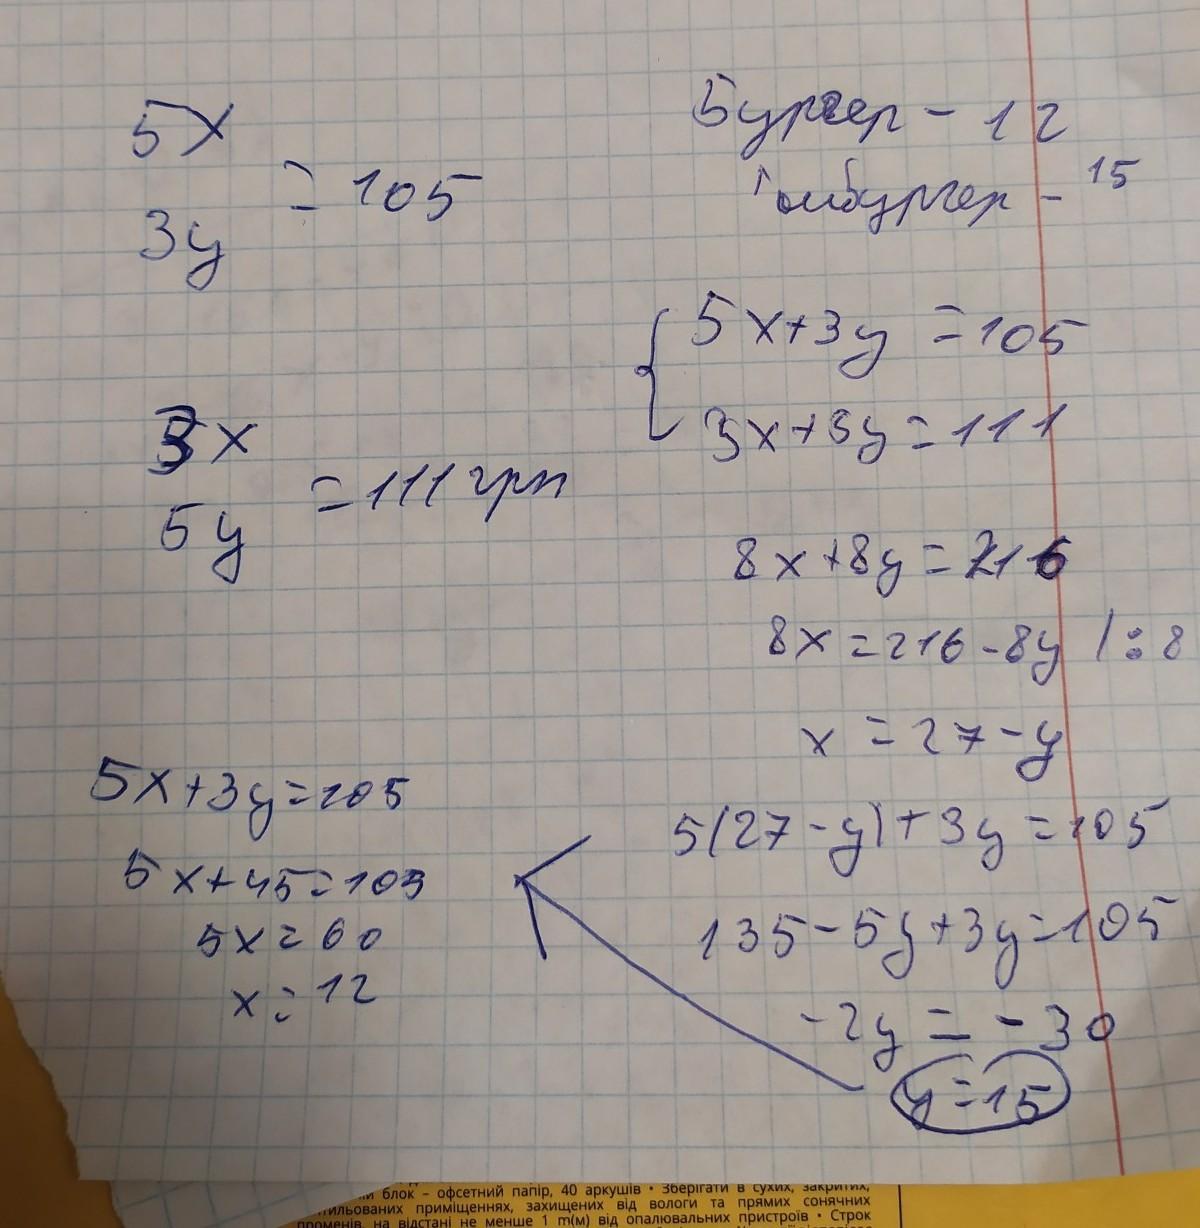 5x
3y
= 105
Бургер - 12
Гамбургер - 15
5x+3y = 105
3x+5y = 111
3x
5y
= 111 грн
8x+8y = 216
8x = 216 - 8y / : 8
x = 27 - y
5(27 - y) + 3y = 105
135 - 5y + 3y = 105
-2y = -30
y = 15
5x+3y = 105
5x+45 = 105
5x = 60
x = 12
й блок – офсетний папір, 40 аркушів • Зберігати в сухих, закритих,
тильованих приміщеннях, захищених від вологи та прямих сонячних
променів, на відстані не менше 1 m(м) від опалювальних пристроїв • Строк